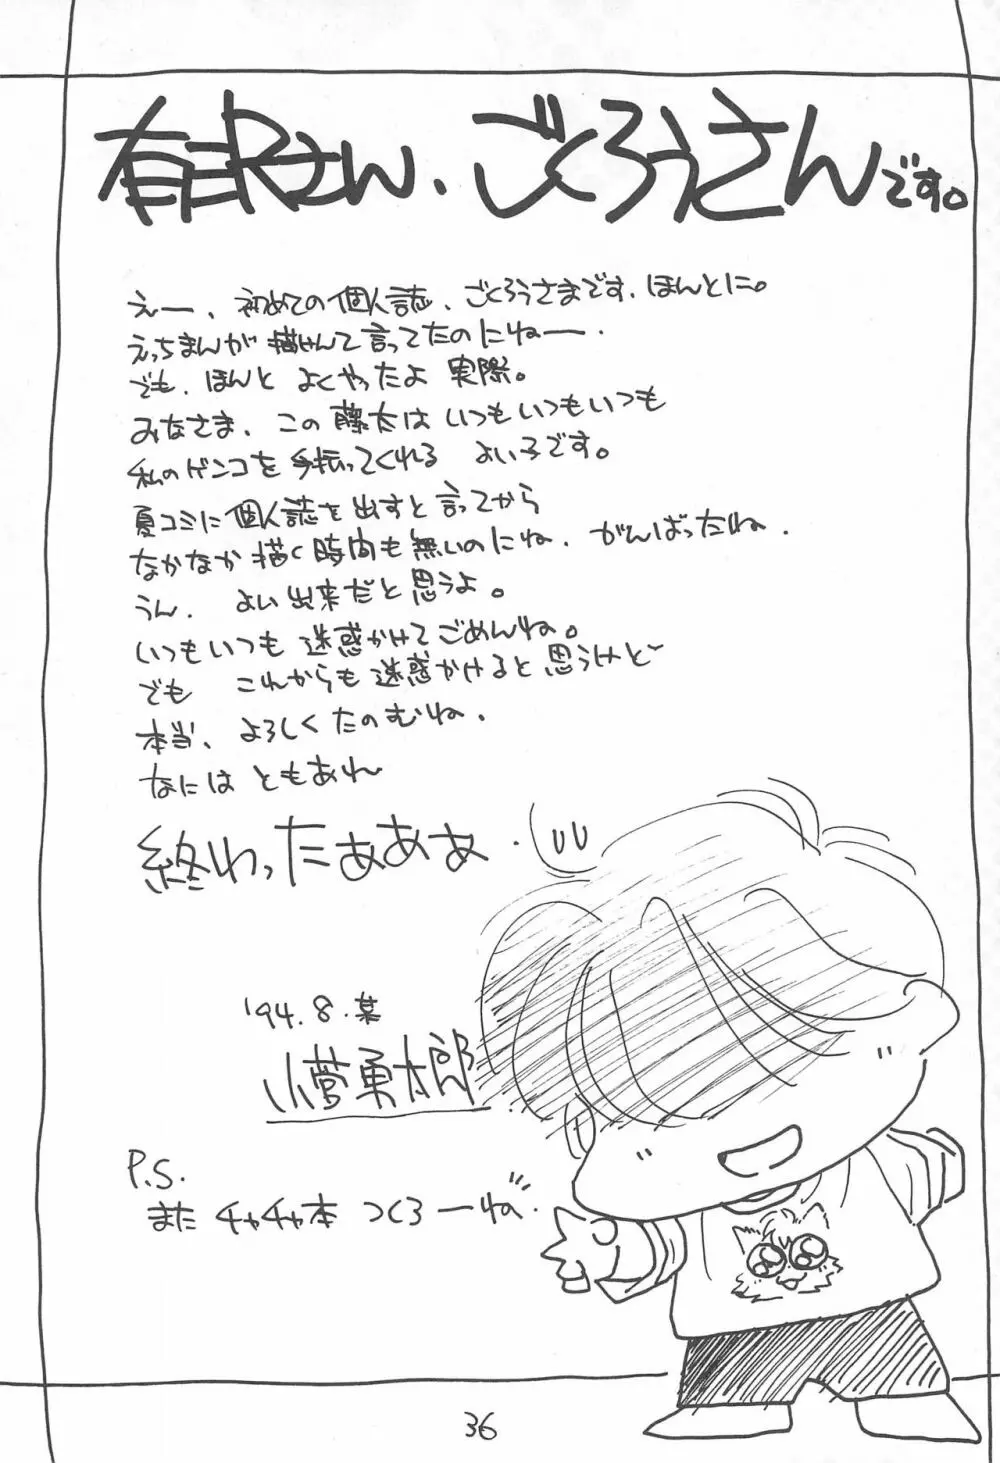 有沢さん、ごくろうさんです。
えー、初めての個人誌、ごくろうさまです、ほんとに。
えっちまんが描けんて言ってたのにねー、
でも、ほんと よくやったよ 実際。
みなさま、この 藤太は いつもいつもいつも
私のゲンコを手振ってくれる よい子です。
夏コミに個人誌を出すと言ってから
なかなか描く時間も無いのにね、がんばったね、
うん、よい出来だと思うよ。
いつもいつも 迷惑かけてごめんね。
でも これからも迷惑かけると思うけど
本当、よろしくたのむね、
なにはともあれ
終わったぁああ
'94.8.某
小菅勇太郎
P.S.
また チャチャ本 つくろーね。
36